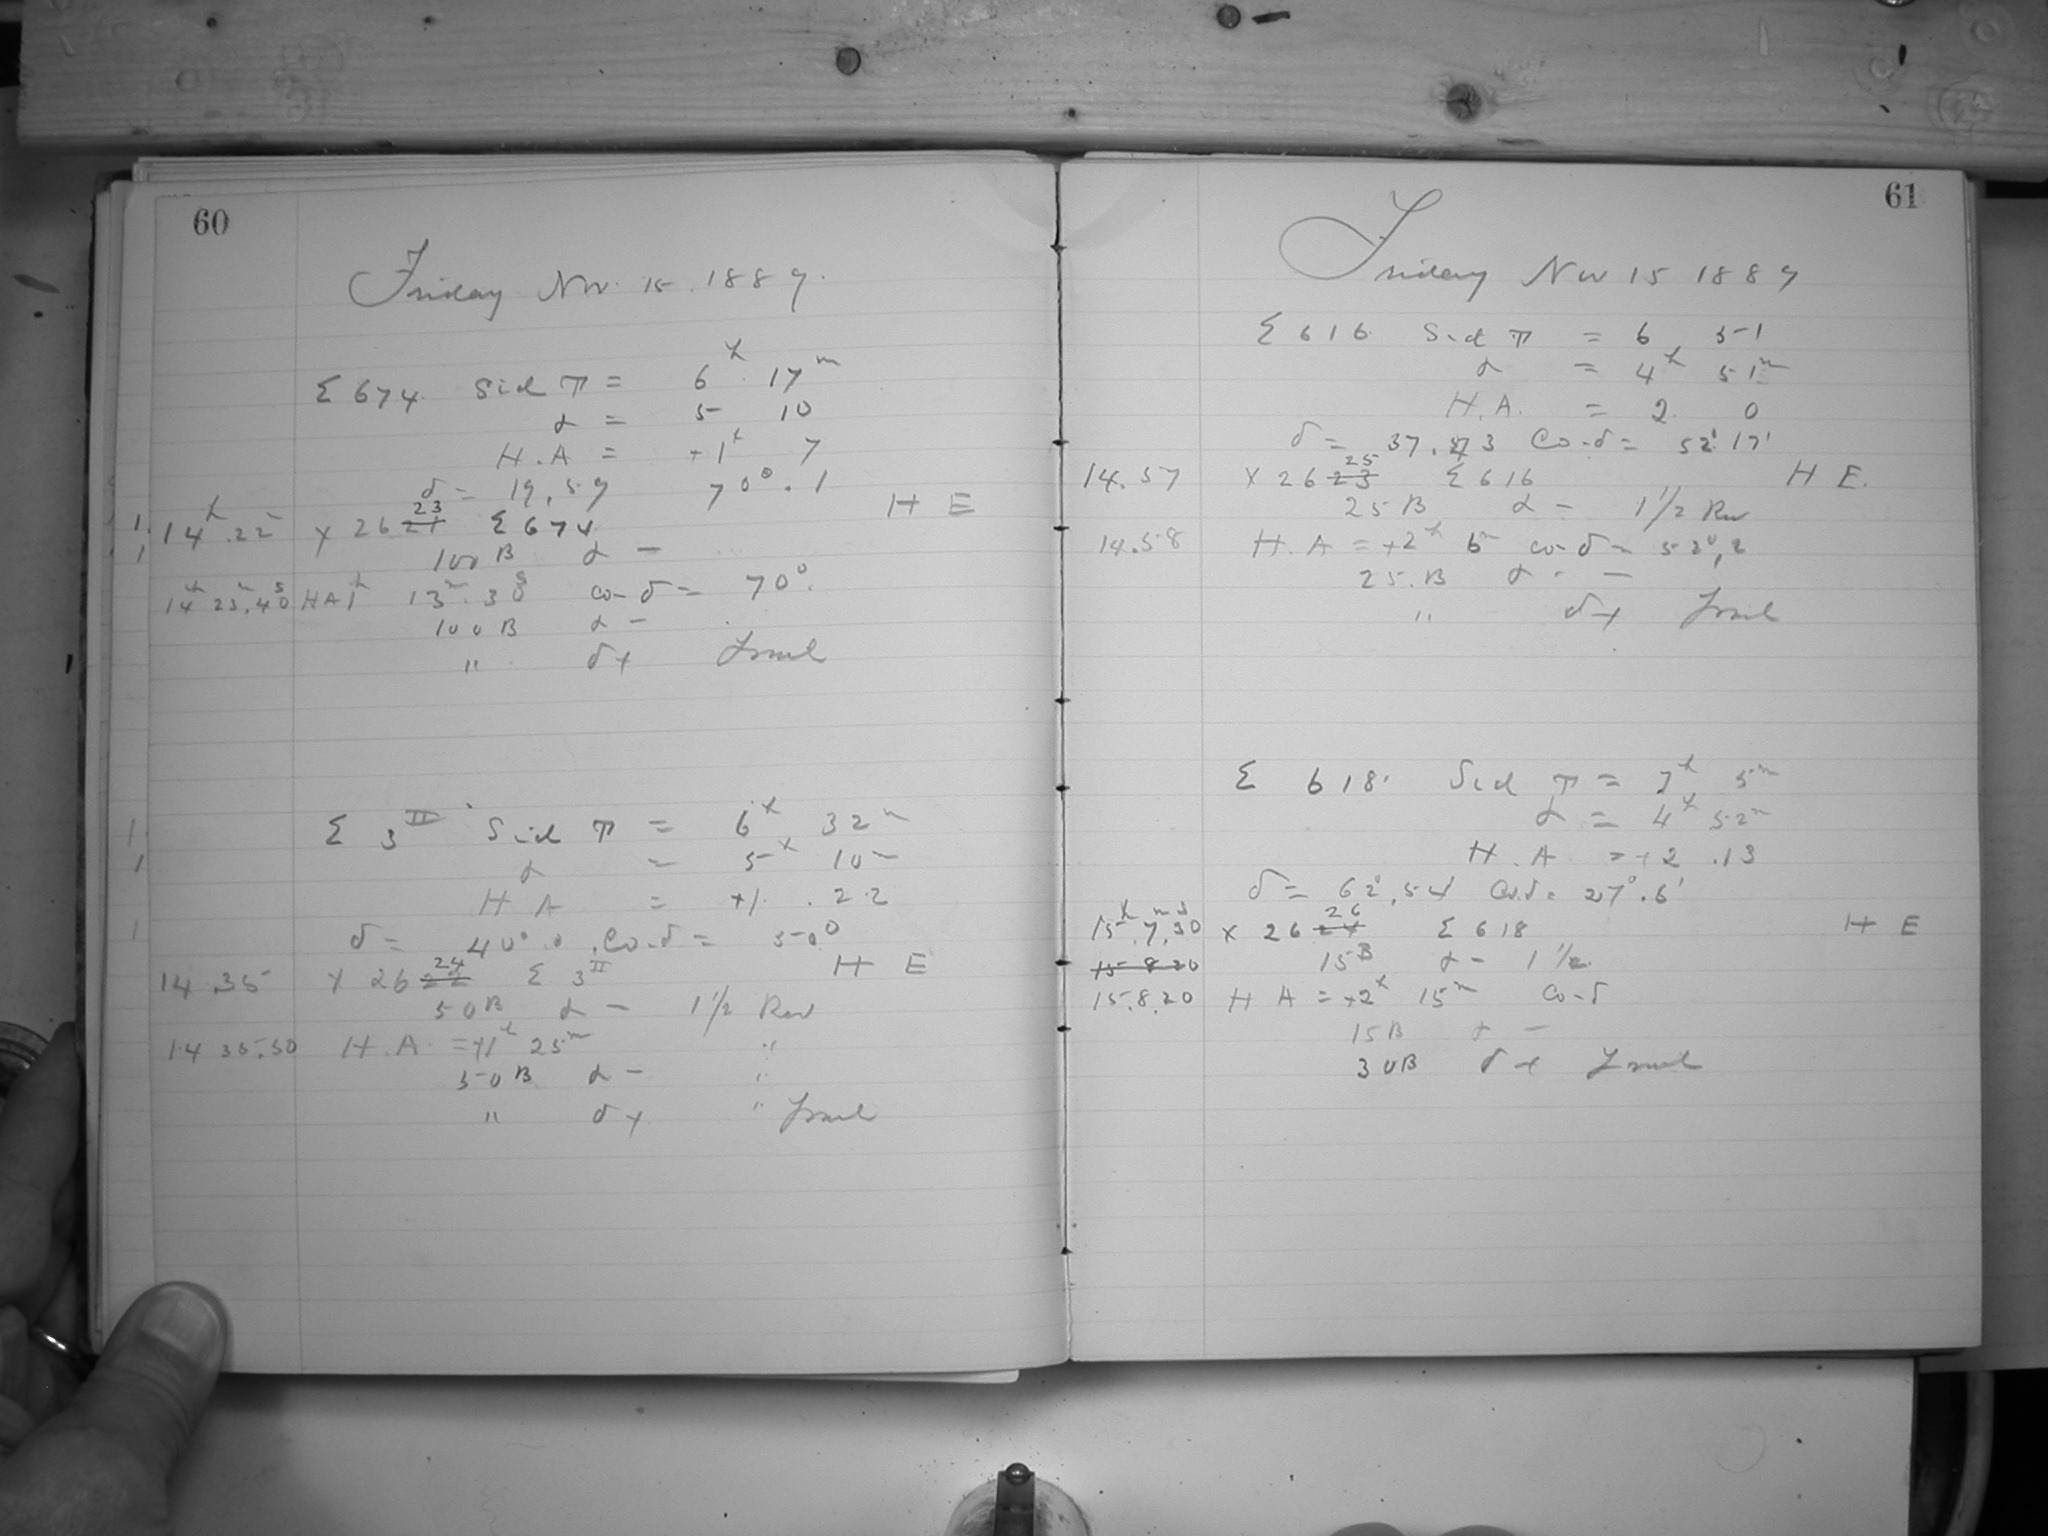 60
Friday Nov. 15. 1889.
Σ 674 Sid T = 6h 17m
α = 5 10
H.A = +1h 7
δ = 19,59 70°.1
23
14h.22m X 26 21 Σ 674 H E
100B α –
14h 23m.40s HA 1h 13m.30s co-δ = 70°.
100B α –
" δ +
Σ 3II Sid T = 6h, 32m
α = 5h 10m
H A = +1 . 22
δ = 40°.0, Co-δ = 50.0
24
14.35 X 26 22 Σ 3II H E
50B α – 1 1/2 Rev
14 35.50 H.A. = +1h 25m "
50B α – "
" δ + "
61
Friday Nov 15 1889
Σ 616 Sid T = 6 51
α = 4h 51m
H.A. = 2 0
δ = 37.43 Co-δ = 52° 17'
25
14.57 X 26 23 Σ 616 H E.
25B α – 1 1/2 Rev
14.58 H.A = +2h 6m co-δ = 52°,2
25.B α –
" δ +
Σ 618. Sid T = 7h 5m
α = 4h 52m
H.A = +2 .13
δ = 62°,54' Co.δ = 27°.6'
26
15h.7m.30s X 26 24 Σ 618 H E
15.8.20 15B α – 1 1/2
15.8.20 H A = +2h 15m Co-δ
15B α –
30B δ +